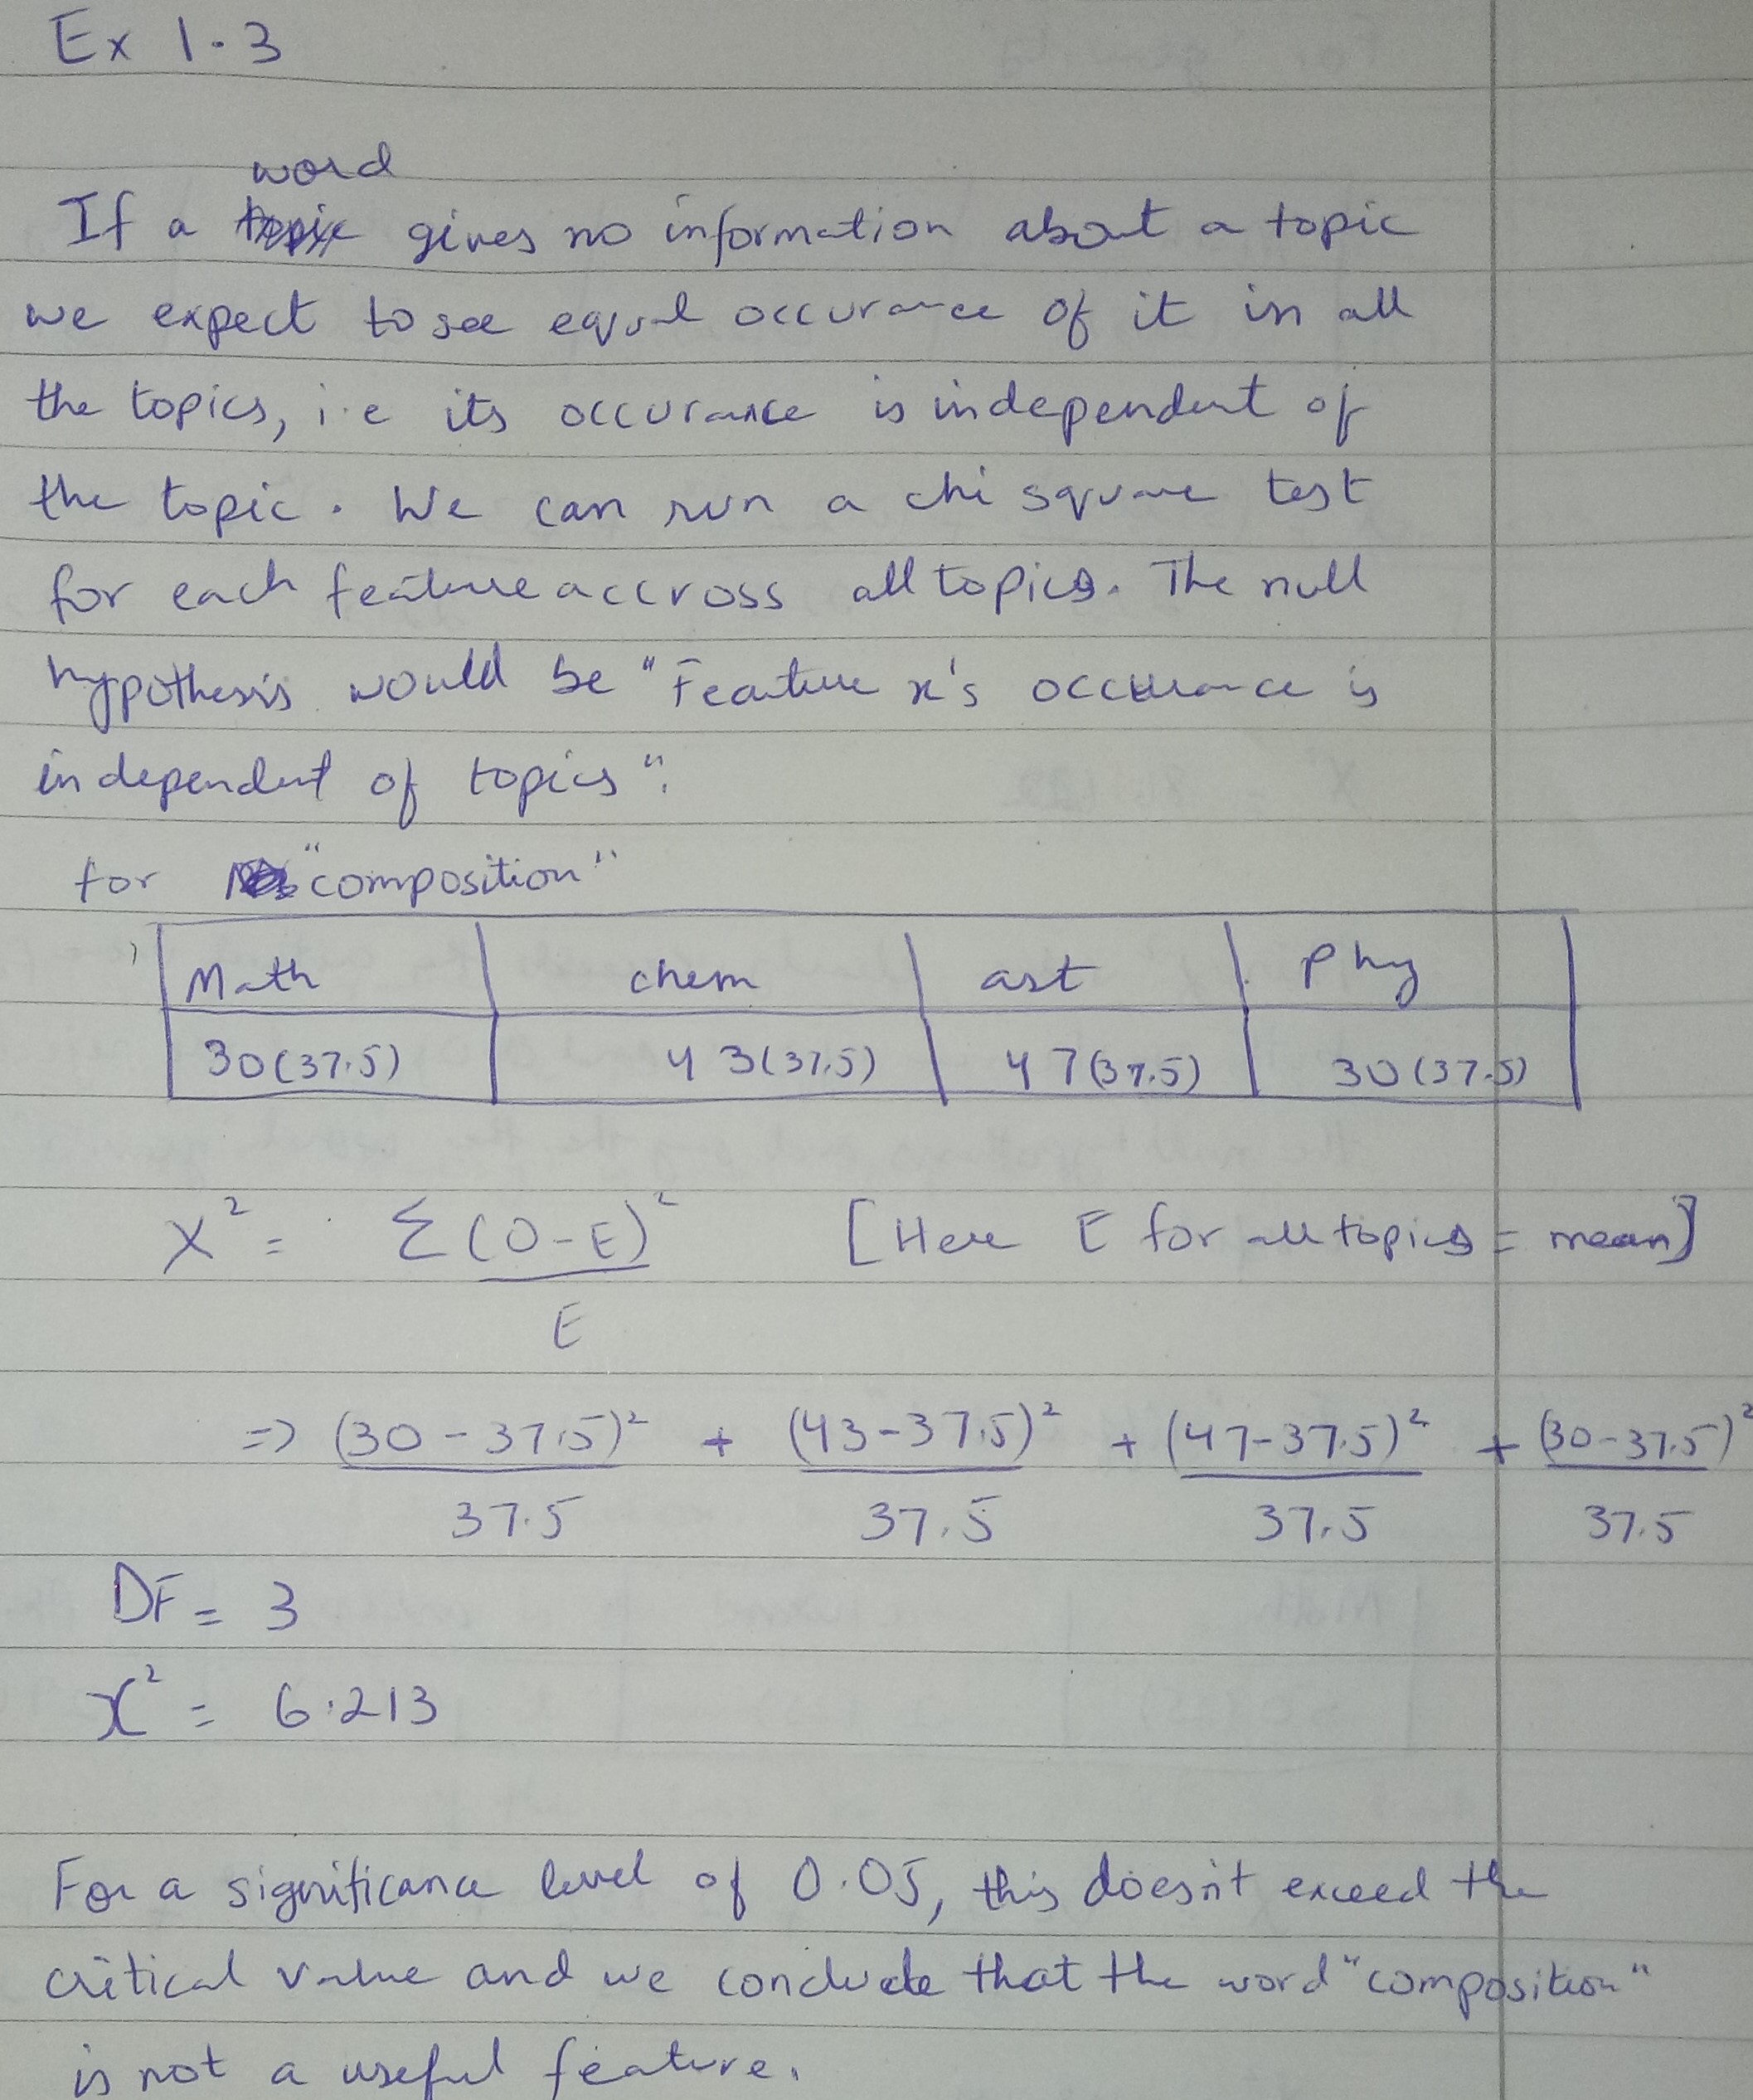 Ex 1.3
word
If a gives no information about a topic
we expect to see equal occurance of it in all
the topics, i.e its occurance is independent of
the topic. We can run a chi square test
for each feature accross all topics. The null
hypothesis would be "Feature x's occurance is
independent of topics".
for "composition"
Math chem ast Phy
30(37.5) 43(37.5) 47(37.5) 30(37.5)
X² = Σ(O-E)² [Here E for all topics = mean]
E
=> (30-37.5)² + (43-37.5)² + (47-37.5)² + (30-37.5)²
37.5 37.5 37.5 37.5
DF = 3
X² = 6.213
For a significance level of 0.05, this doesn't exceed the
critical value and we conclude that the word "composition"
is not a useful feature.